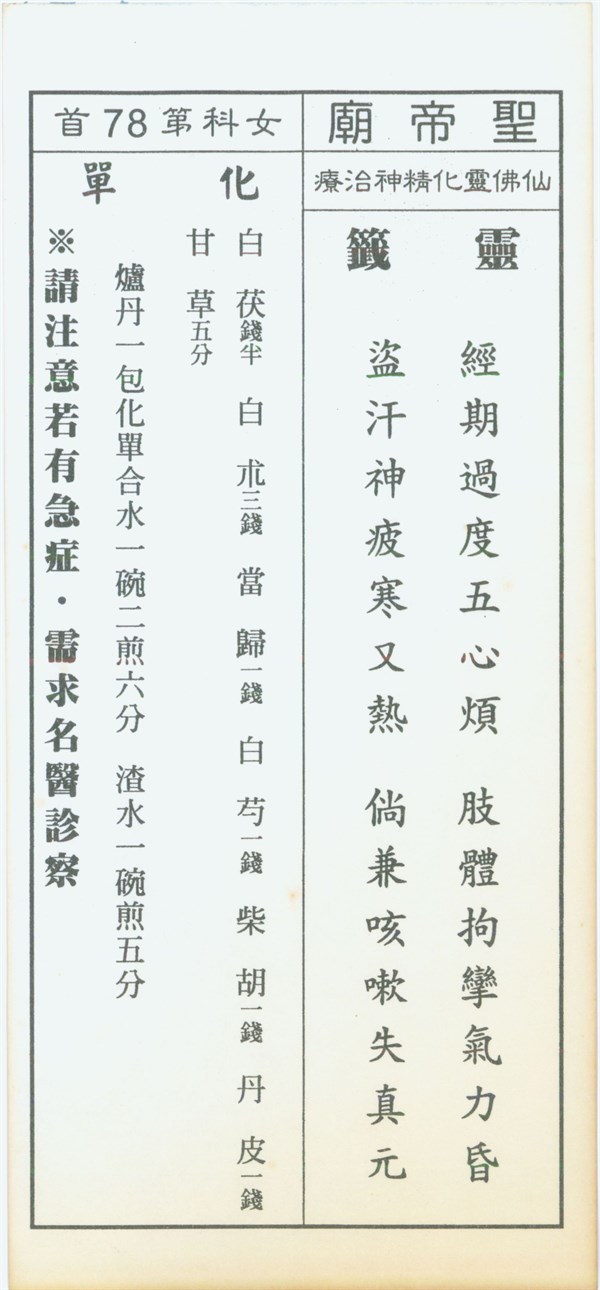 聖帝廟
仙佛靈化精神治療
靈籤
經期過度五心煩 肢體拘攣氣力昏
盜汗神疲寒又熱 倘兼咳嗽失真元
女科第78首
化單
白茯錢半 白朮三錢 當歸一錢 白芍一錢 柴胡一錢 丹皮一錢
甘草五分
爐丹一包化單合水一碗二煎六分 渣水一碗煎五分
※請注意若有急症・需求名醫診察